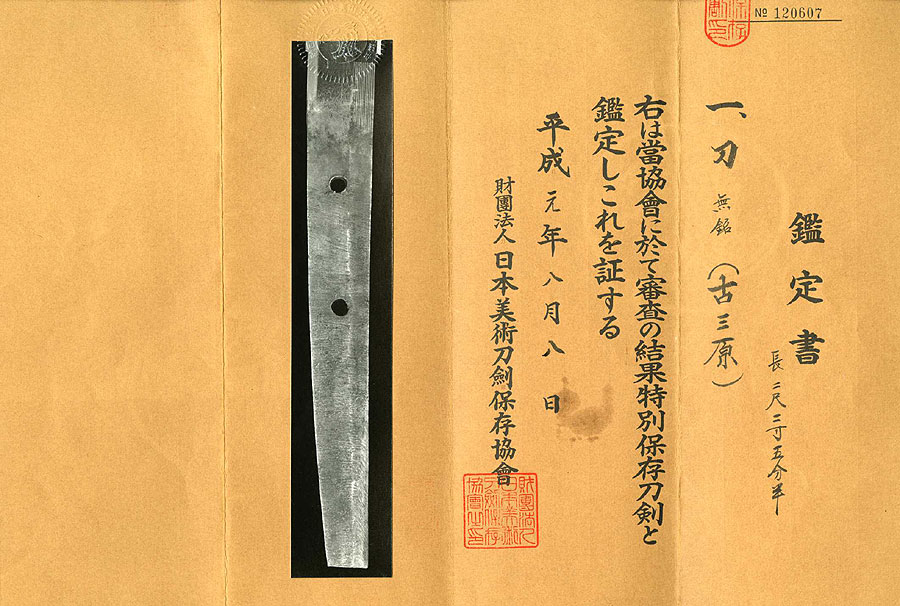 № 120607
鑑定書
一、刀 無銘（古三原）
長二尺二寸五分半
右は當協會に於て審査の結果特別保存刀剣と
鑑定しこれを証する
平成元年八月八日
財團法人日本美術刀劍保存協會